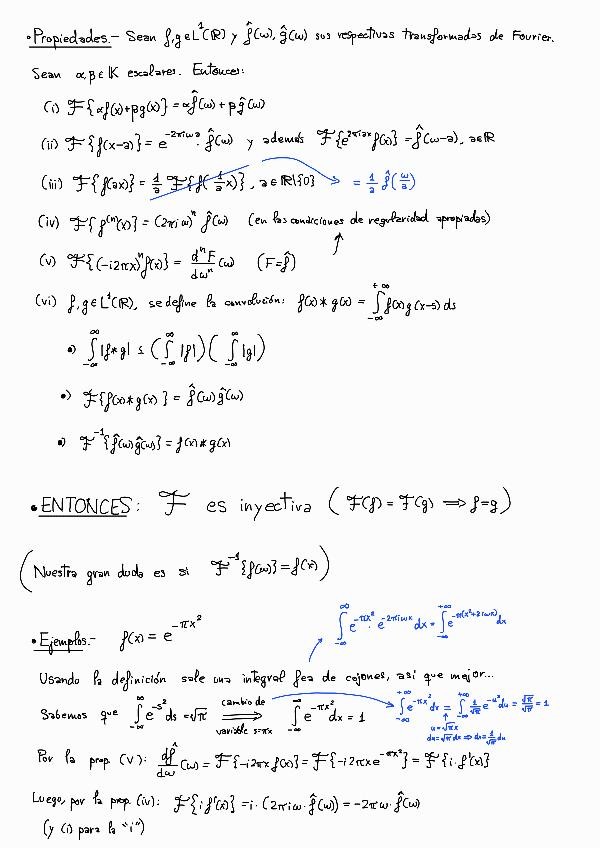 • Propiedades.- Sean f,g ∈ L¹(ℝ) y f̂(ω), ĝ(ω) sus respectivas transformadas de Fourier.
Sean α,β ∈ K escalares. Entonces:
(i) F{αf(x)+βg(x)} = αf̂(ω) + βĝ(ω)
(ii) F{f(x-a)} = e^{-2πiωa}·f̂(ω) y además F{e^{2πiax}f(x)} = f̂(ω-a), a∈ℝ
(iii) F{f(ax)} = 1/a F{f(1/a x)}, a∈ℝ\{0} = 1/a f̂(ω/a)
(iv) F{f^{(n)}(x)} = (2πiω)^n f̂(ω) (en las condiciones de regularidad apropiadas)
(v) F{(-i2πx)^n f(x)} = d^n F/dω^n (ω) (F=f̂)
(vi) f,g∈L¹(ℝ), se define la convolución: f(x)*g(x) = ∫_{-∞}^{+∞} f(s)g(x-s)ds
•) ∫_{-∞}^{∞} |f*g| ≤ (∫_{-∞}^{∞} |f|)(∫_{-∞}^{∞} |g|)
•) F{f(x)*g(x)} = f̂(ω)ĝ(ω)
•) F^{-1}{f̂(ω)ĝ(ω)} = f(x)*g(x)
• ENTONCES: F es inyectiva (F(f) = F(g) ⟹ f=g)
(Nuestra gran duda es si F^{-1}{f(ω)} = f(x))
∫_{-∞}^{∞} e^{-πx²}·e^{-2πiωx}dx = ∫_{-∞}^{+∞} e^{-π(x²+2iωx)}dx
• Ejemplos.- f(x) = e^{-πx²}
Usando la definición sale una integral fea de cojones, así que mejor...
Sabemos que ∫_{-∞}^{∞} e^{-s²}ds = √π cambio de ⟹ variable s=πx ∫_{-∞}^{∞} e^{-πx²}dx = 1
∫_{-∞}^{+∞} e^{-πx²}dx = ∫_{-∞}^{+∞} 1/√π e^{-u²}du = √π/√π = 1
u=√πx
du=√πdx ⟹ dx=1/√π du
Por la prop. (v): df̂/dω (ω) = F{-i2πx f(x)} = F{-i2πx e^{-πx²}} = F{i·f'(x)}
Luego, por la prop. (iv): F{i f'(x)} = i·(2πiω·f̂(ω)) = -2πω·f̂(ω)
(y (i) para la "i")